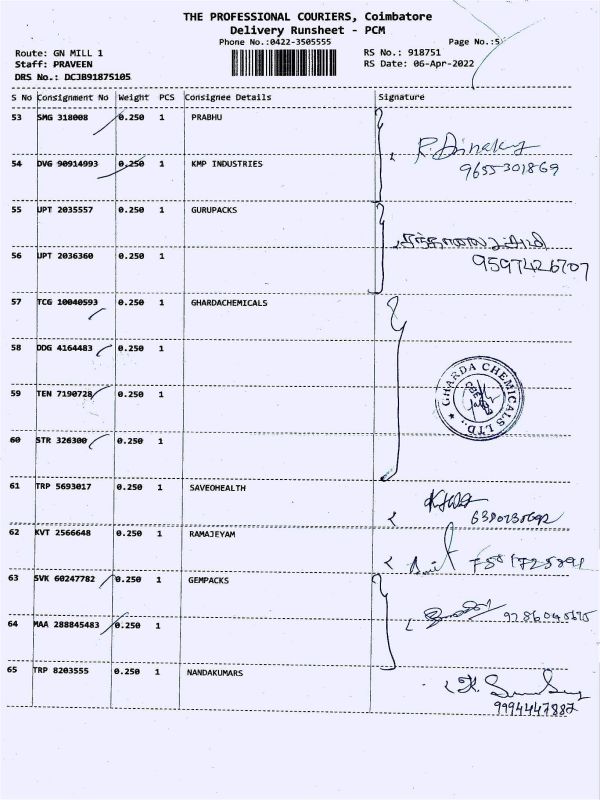 THE PROFESSIONAL COURIERS, Coimbatore
Delivery Runsheet - PCM
Phone No.:0422-3505555
Page No.:5
Route: GN MILL 1
RS No.: 918751
Staff: PRAVEEN
RS Date: 06-Apr-2022
DRS No.: DCJB91875105
S No Consignment No Weight PCS Consignee Details Signature
53 SMG 318008 0.250 1 PRABHU
9655301869
54 DVG 90914993 0.250 1 KMP INDUSTRIES
55 UPT 2035557 0.250 1 GURUPACKS
9597426707
56 UPT 2036360 0.250 1
57 TCG 10040593 0.250 1 GHARDACHEMICALS
58 DDG 4164483 0.250 1
59 TEN 7190728 0.250 1
GHARDA CHEMICALS LTD.
60 STR 326300 0.250 1
61 TRP 5693017 0.250 1 SAVEOHEALTH
62 KVT 2566648 0.250 1 RAMAJEYAM
63 SVK 60247782 0.250 1 GEMPACKS
64 MAA 288845483 0.250 1
65 TRP 8203555 0.250 1 NANDAKUMARS
9994447887